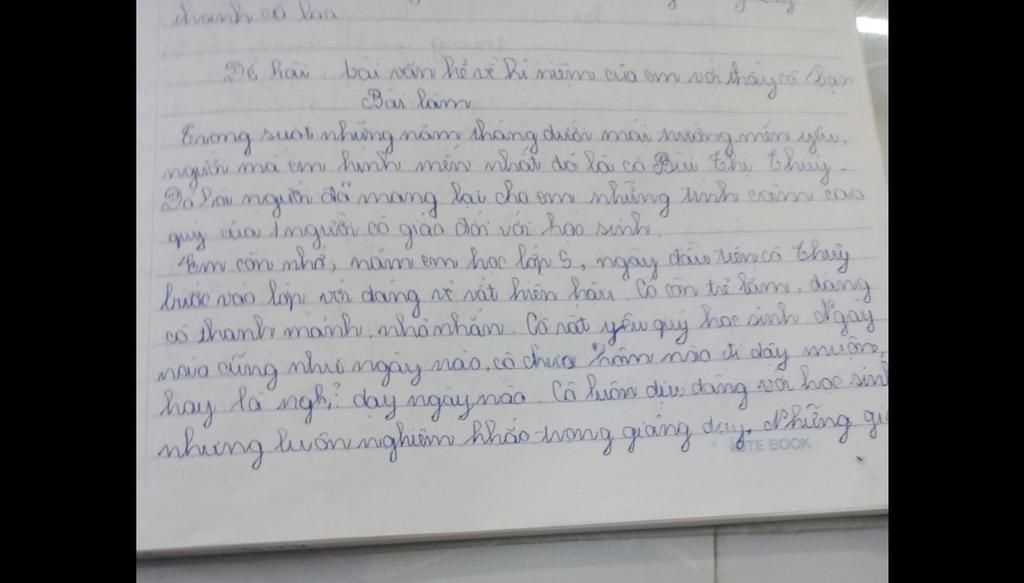 thanh cô
Đề bài bài văn kể về kỉ niệm của em với thầy cô bạn
Bài làm
Trong suốt những năm tháng dưới mái trường mến yêu,
người mà em kính mến nhất đó là cô Bùi Thị Thuỷ.
Đó là người đã mang lại cho em những tình cảm cao
quý của 1 người cô giáo đối với học sinh.
Em còn nhớ, năm em học lớp 5, ngày đầu tiên cô Thuỷ
bước vào lớp với dáng vẻ rất hiền hậu. Cô còn trẻ lắm, dáng
cô thanh mảnh, nhỏ nhắn. Cô rất yêu quý học sinh. Ngày
nào cũng như ngày nào, cô chưa hôm nào đi dạy muộn,
hay là nghỉ dạy ngày nào. Cô luôn dịu dàng với học sinh
nhưng luôn nghiêm khắc trong giảng dạy. Những gi
NOTE BOOK